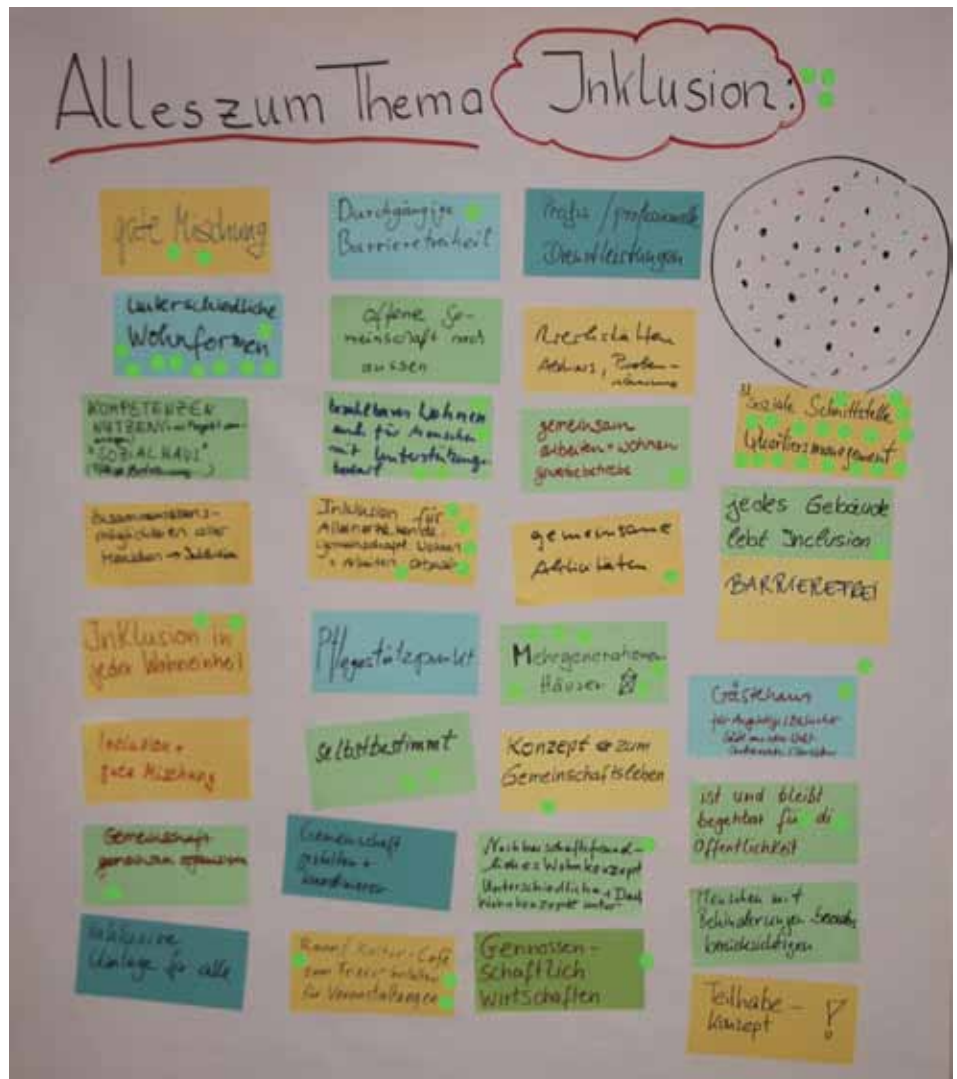 Alles zum Thema Inklusion:
gute Mischung
unterschiedliche
Wohnformen
KOMPETENZEN
NUTZEN
"SOZIALHAUS"
Zusammenlebens-
möglichkeiten aller
Menschen → Inklusion
Inklusion in
jeder Wohneinheit
Inclusion +
gute Mischung
Gemeinschaft
gemeinsam organisieren
inklusive
Umlage für alle
Durchgängige
Barrierefreiheit
offene Ge-
meinschaft nach
aussen
bezahlbares Wohnen
auch für Menschen
mit Unterstützungs-
bedarf
Inklusion für
Alleinerziehende,
gemeinschaftl. Wohnen
+ Arbeiten
Pflegestützpunkt
selbstbestimmt
Gemeinschaft
gestalten +
koordinieren
Raum / Kultur-Café
zum
für Veranstaltungen
Profis / professionelle
Dienstleistungen
Werkstätten
gemeinsam
arbeiten + wohnen
gewerbebetriebe
gemeinsame
Aktivitäten
Mehrgenerationen
Häuser
Konzept zum
Gemeinschaftsleben
Nachbarschaftsfreund-
liches Wohnkonzept
Unterschiedliche
Wohnkonzepte unter 1 Dach
Genossen-
schaftlich
wirtschaften
Soziale Schnittstelle
Quartiersmanagement
jedes Gebäude
lebt Inclusion
BARRIEREFREI
Gästehaus
für
ist und bleibt
begehbar für di
Öffentlichkeit
Menschen mit
Behinderungen
berücksichtigen
Teilhabe-
konzept !